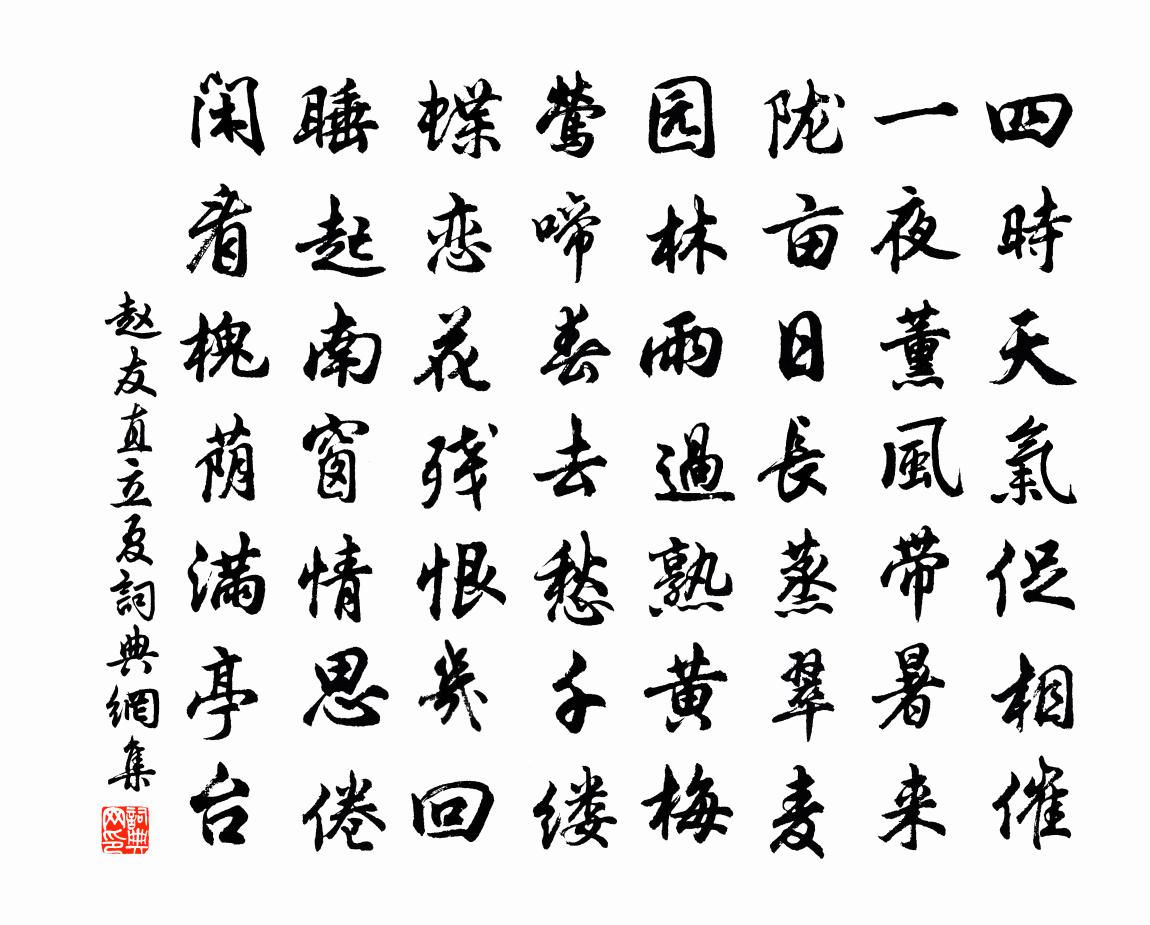 四時天氣促相催
一夜薰風带暑来
陇亩日長蒸翠麦
园林雨過熟黄梅
莺啼春去愁千缕
蝶恋花残恨幾回
睡起南窗情思倦
闲看槐荫满亭台
赵友直立夏詞典網集
詞典网印